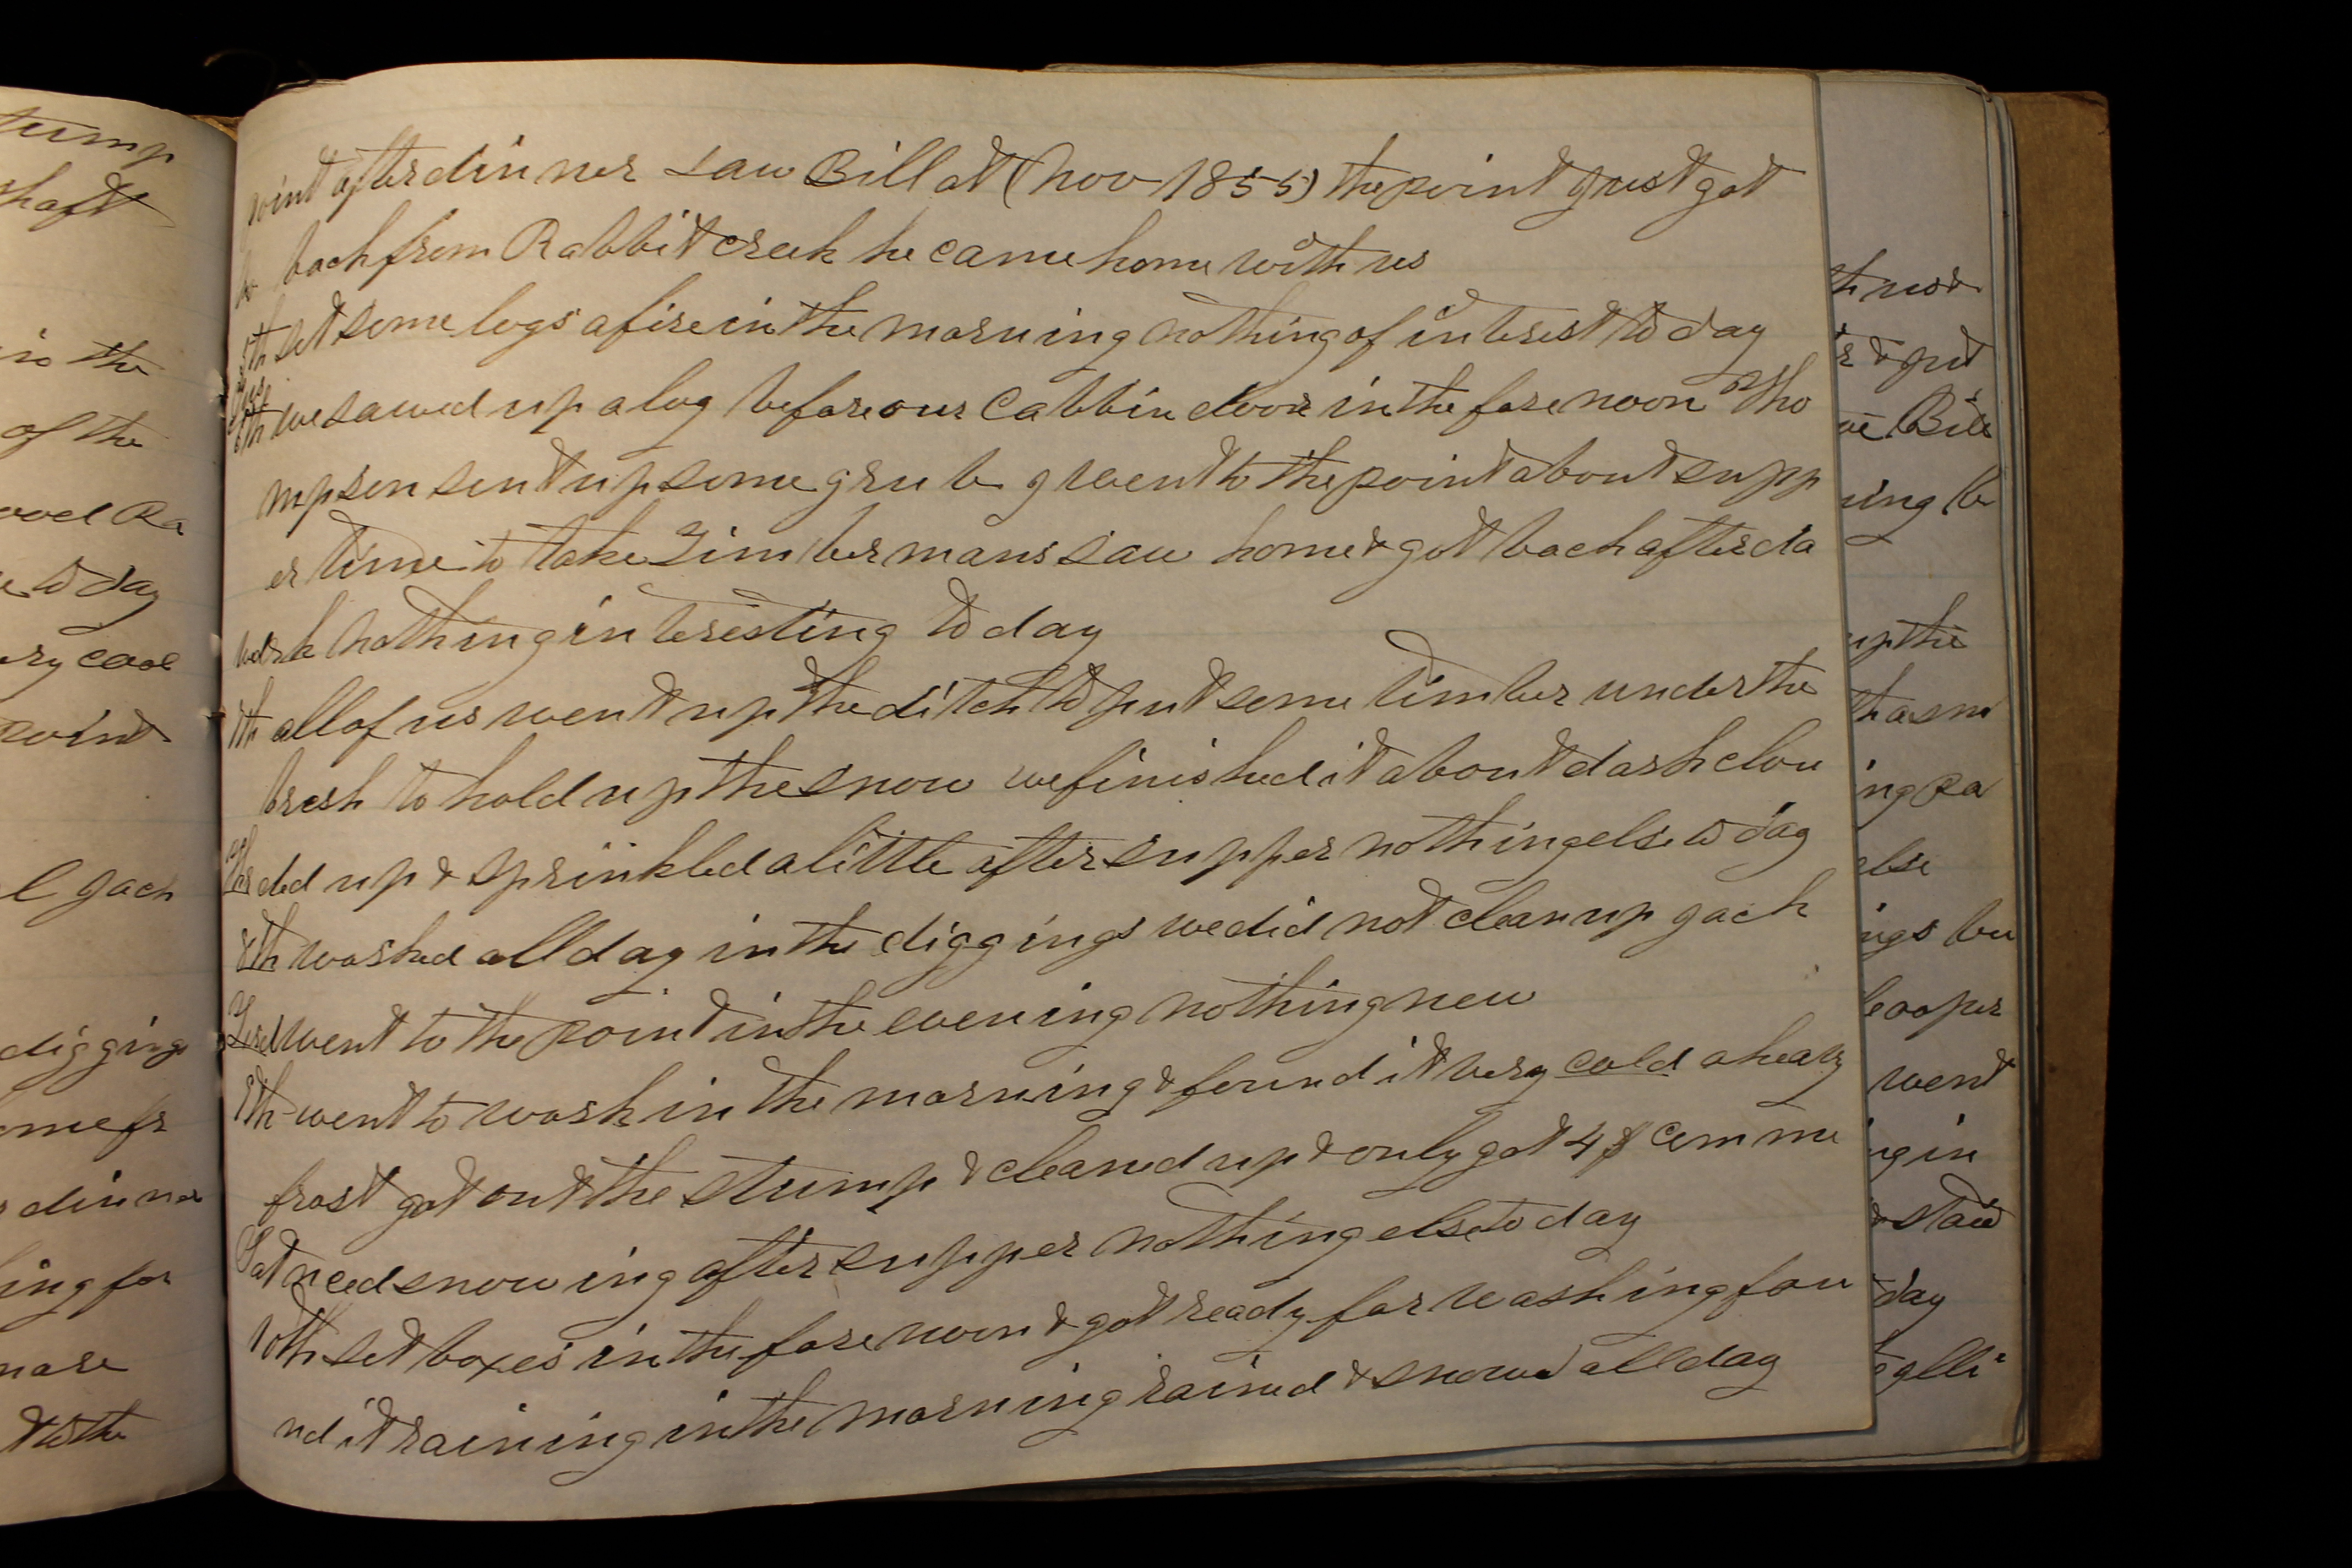 tump
shaft
is the
of the
ood Ra
to day
ery cool
point
l Jack
diggings
ome fr
dinner
ing for
more
to the
point after dinner saw Bill at (Nov 1855) the point Just got
back from Rabbit creek he came home with us
5th set some logs afire in the morning nothing of interest to day
6th we sawed up a log before our Cabbin door in the fore noon Tho
mpson sent up some grub I went to the point about supp
er time to take Zimbermans saw home & got back after da
rk nothing interesting to day
7th all of us went up the ditch to put some timber under the
bresh to hold up the snow we finished it about dark clou
ded up & sprinkled a little after supper nothing else to day
8th washed all day in the diggings we did not clean up Jack
went to the point in the evening nothing new
9th went to wash in the morning & found it very cold a heavy
frost got out the stump & cleaned up & only got 4 $ comme
Sat nced snowing after supper nothing else to day
10th set boxes in the fore noon & got ready for washing fou
nd it raining in the morning rained & snowed all day
& put
Bill
ing b
up the
ing Ra
else
ngs bu
cooper
went
ng in
& staid
day